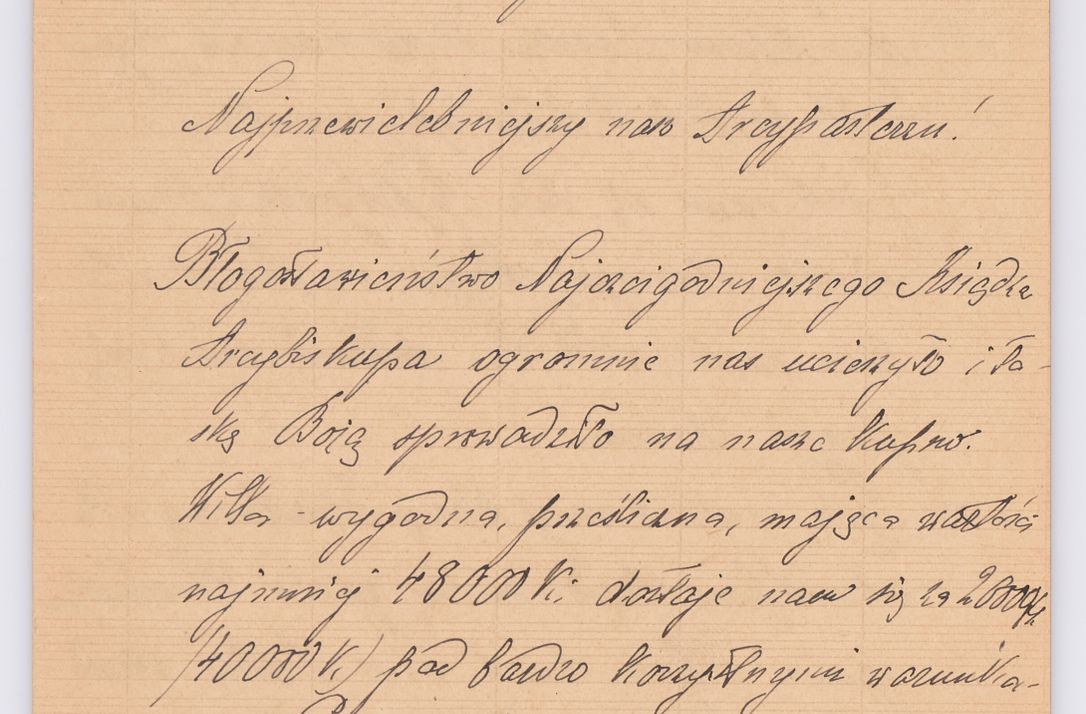 Najprzewielebniejszy nasz Arcypasterzu!
Błogosławieństwo Najczcigodniejszego Księdza
Arcybiskupa ogromnie nas ucieszyło i ła-
skę Bożą sprowadziło na nasze kupno.
Willa - wygodna, prześliczna, mająca wartość
najmniej 48000 K. dostaje nam się za 20000
(40000 K) pod bardzo korzystnymi warunka-